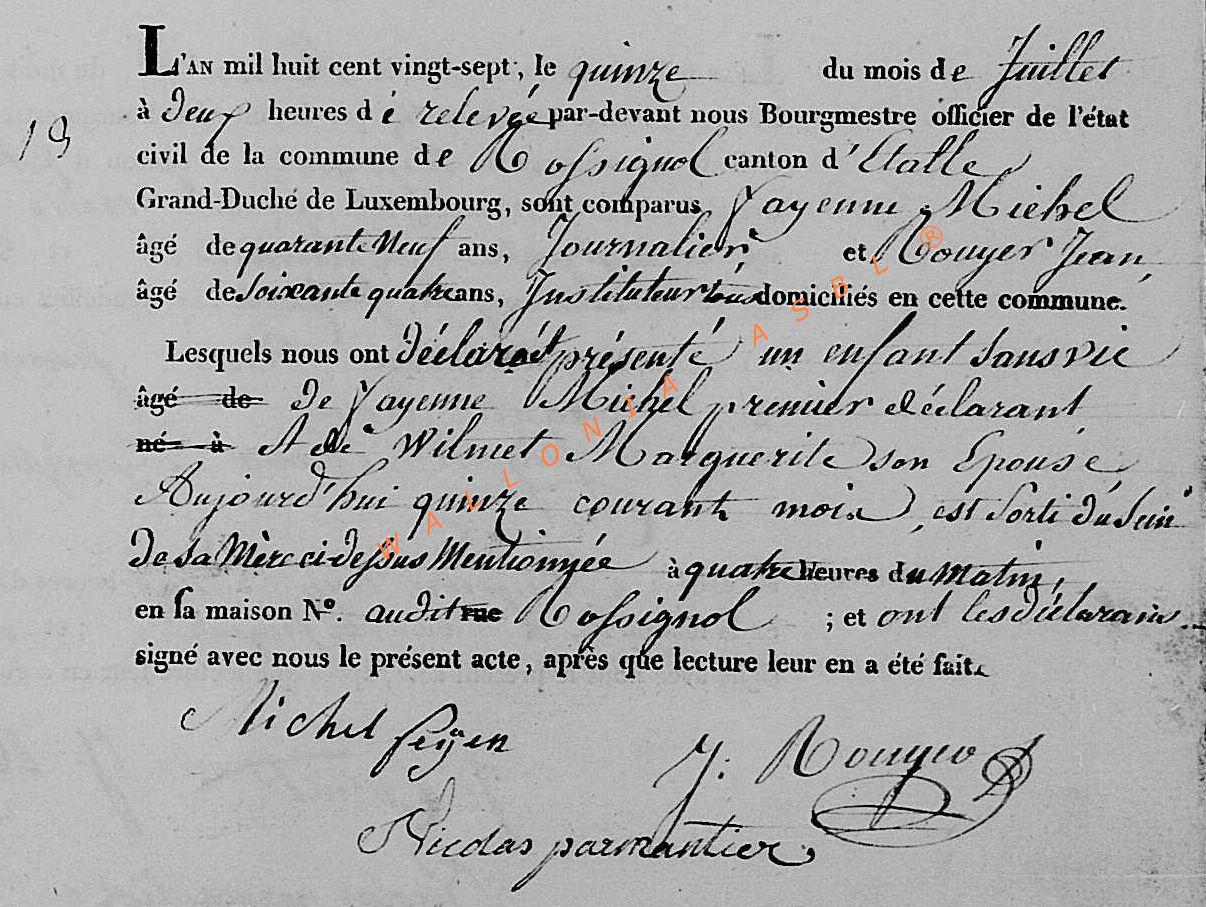 L'AN mil huit cent vingt-sept, le quinze du mois de Juillet
19
à deux heures dé relevée par-devant nous Bourgmestre officier de l'état
civil de la commune de Rossignol canton d'Etalle
Grand-Duché de Luxembourg, sont comparus Fayenne Michel
âgé de quarante Neuf ans, Journalier, et Rouyer Jean,
âgé de soixante quatre ans, Instituteur tous domiciliés en cette commune.
Lesquels nous ont déclaré et présenté un enfant sans vie
âgé de de Fayenne Michel premier déclarant
né à & de Wilmet Marguerite son Epouse
Aujourd'hui quinze courant mois, est sorti du sein
de sa Mère ci-dessus Mentionnée à quatre heures du Matin,
en sa maison Nº. audit rue Rossignol ; et ont les déclarans
signé avec nous le présent acte, après que lecture leur en a été faite
Michel feÿen
J. Rouyer
Nicolas parmantier
WALLONIA ASBL ®